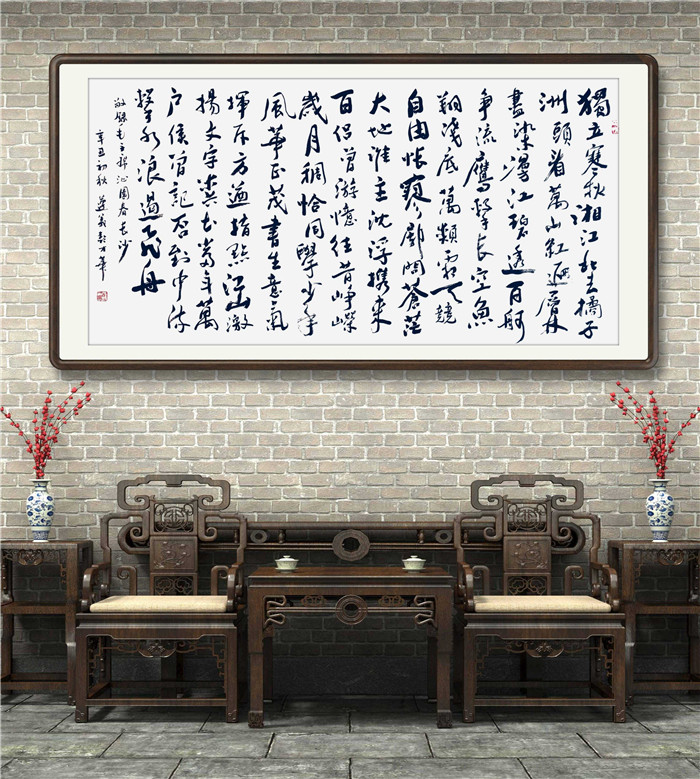 獨立寒秋湘江北去橘子
洲頭看萬山紅遍層林
盡染漫江碧透百舸
争流鷹擊長空魚
翔淺底萬類霜天競
自由悵寥廓問蒼茫
大地誰主沈浮携來
百侣曾游憶往昔崢嶸
歲月稠恰同學少年
風華正茂書生意氣
揮斥方遒指點江山激
揚文字糞土當年萬
户侯曾記否到中流
擊水浪遏飛舟
敬録毛主席沁園春長沙
辛丑初秋